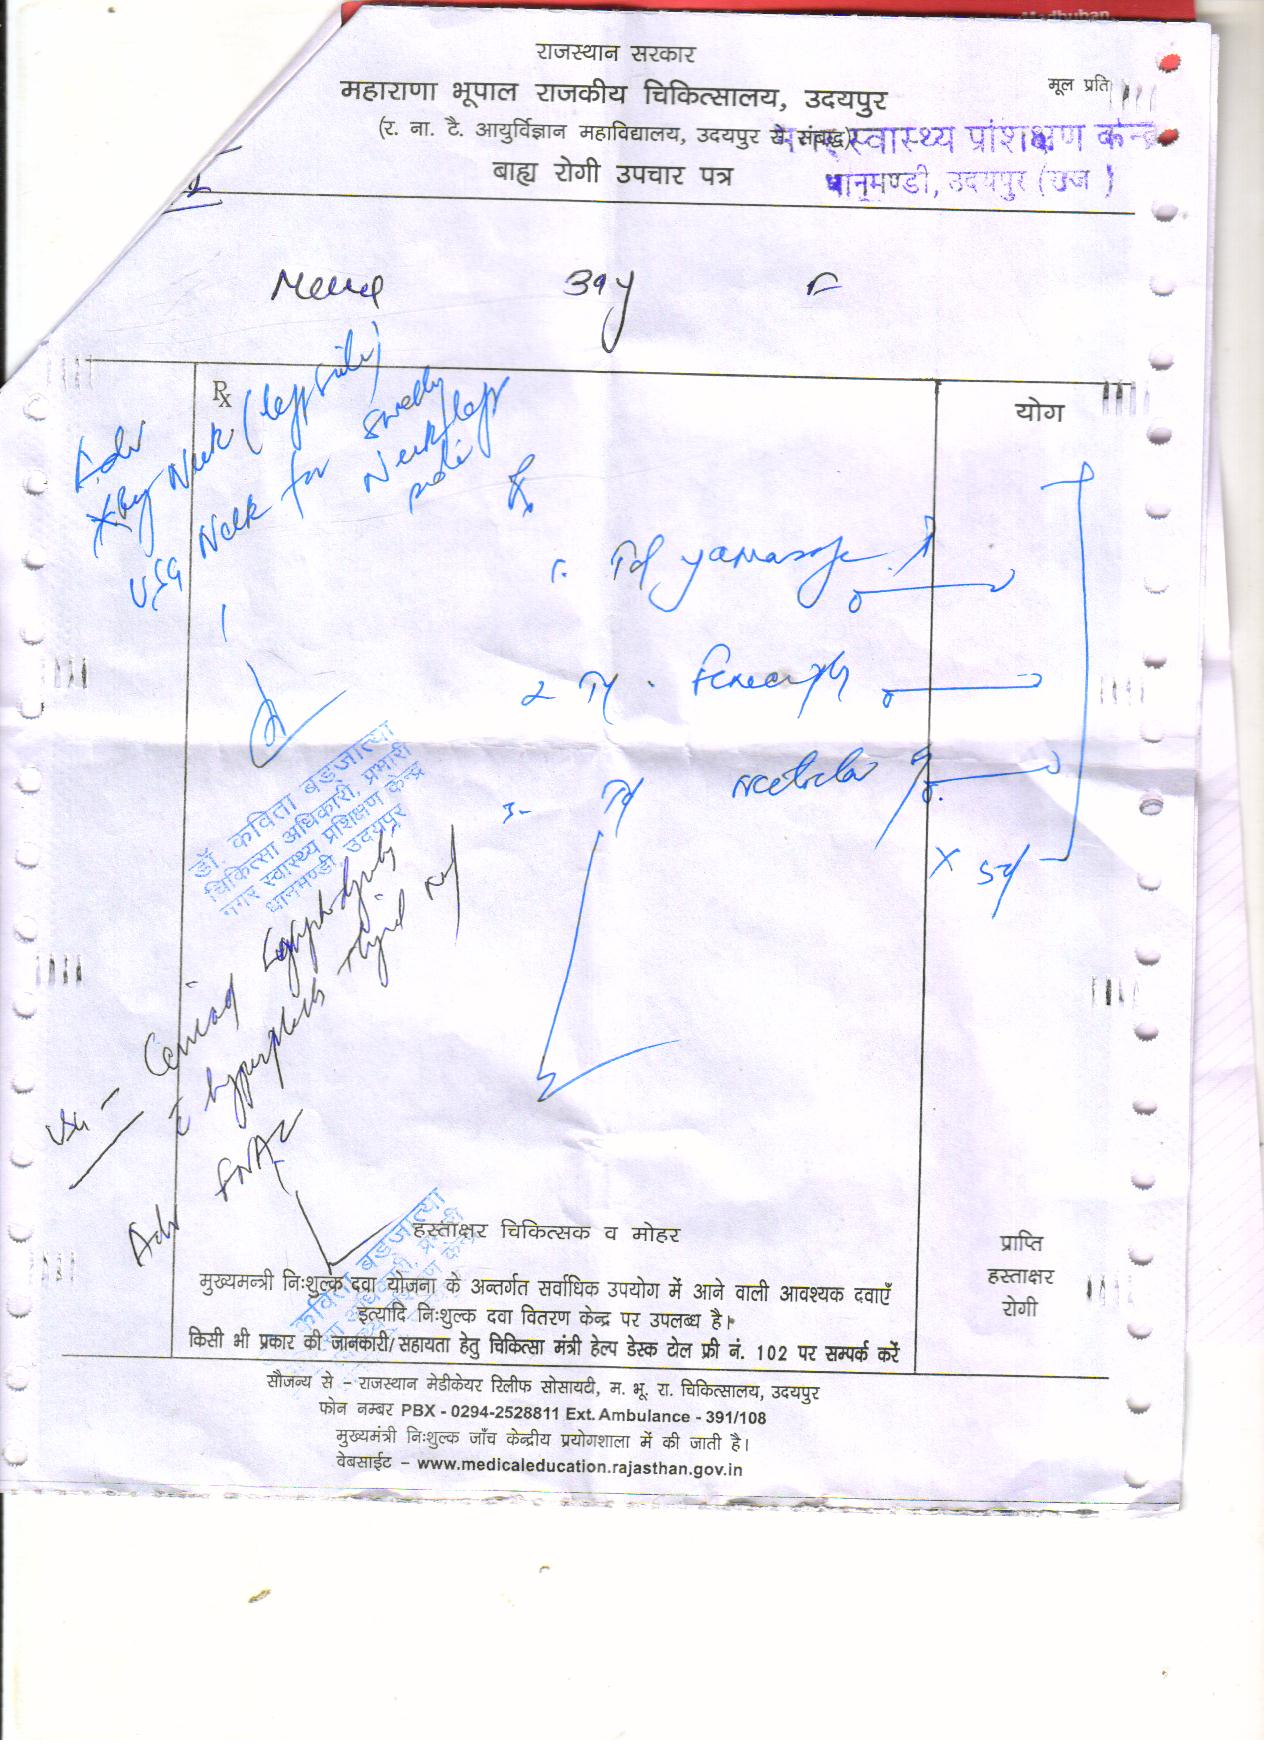 राजस्थान सरकार
महाराणा भूपाल राजकीय चिकित्सालय, उदयपुर
मूल प्रति
(र. ना. टै. आयुर्विज्ञान महाविद्यालय, उदयपुर से संबद्ध)
स्वास्थ्य प्रशिक्षण केन्द्र
बाह्य रोगी उपचार पत्र
धानमण्डी, उदयपुर (राज )
39y F
Rx
योग
Adv
Xray Neck (left side)
USG Neck for swelling
Neck left
side
Rx
1.
2
3-
x 5d
डॉ. कविता बड़जात्या
चिकित्सा अधिकारी, प्रभारी
नगर स्वास्थ्य प्रशिक्षण केन्द्र
धानमण्डी, उदयपुर
USG - Cervical
hyperplastic Thyroid
Adv FNAC
कविता बड़जात्या
हस्ताक्षर चिकित्सक व मोहर
प्राप्ति
हस्ताक्षर
रोगी
मुख्यमन्त्री निःशुल्क दवा योजना के अन्तर्गत सर्वाधिक उपयोग में आने वाली आवश्यक दवाएँ
इत्यादि निःशुल्क दवा वितरण केन्द्र पर उपलब्ध है।
किसी भी प्रकार की जानकारी/सहायता हेतु चिकित्सा मंत्री हेल्प डेस्क टोल फ्री नं. 102 पर सम्पर्क करें
सौजन्य से – राजस्थान मेडीकेयर रिलीफ सोसायटी, म. भू. रा. चिकित्सालय, उदयपुर
फोन नम्बर PBX - 0294-2528811 Ext. Ambulance - 391/108
मुख्यमंत्री निःशुल्क जाँच केन्द्रीय प्रयोगशाला में की जाती है।
वेबसाईट – www.medicaleducation.rajasthan.gov.in